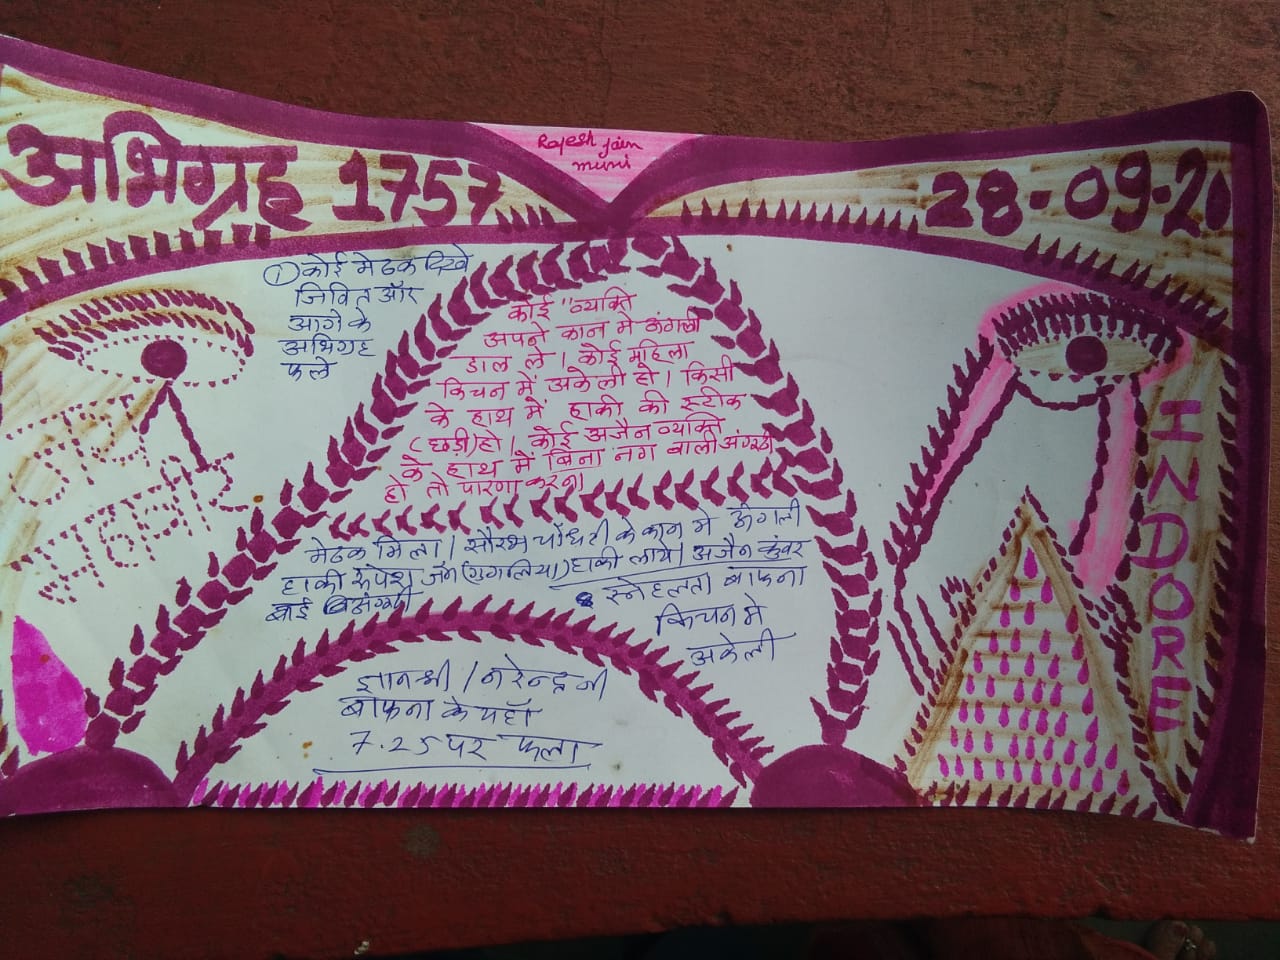 Rajesh Jain
muni
अभिग्रह 1757
28-09-20
① कोई मेढक दिखे
जिवित और
आगे के
अभिग्रह
फले
कोई "व्यक्ति
अपने कान मे ऊंगली
डाल ले । कोई महिला
किचन में अकेली हो । किसी
के हाथ में हाकी की स्टीक
(छड़ी) हो । कोई अजैन व्यक्ति
के हाथ में बिना नग वाली अंगुठी
हो तो पारणा करना
मेढक मिला । सौरभ चौधरी के कान मे ऊंगली
हाकी रुपेश जैन (गुगलिया) हाकी लाये । अजैन कुंवर
बाई अंगुठी
स्नेहलता बाफना
किचन मे
अकेली
ज्ञानश्री / नरेन्द्र जी
बाफना के यहाँ
7.25 पर फला
INDORE